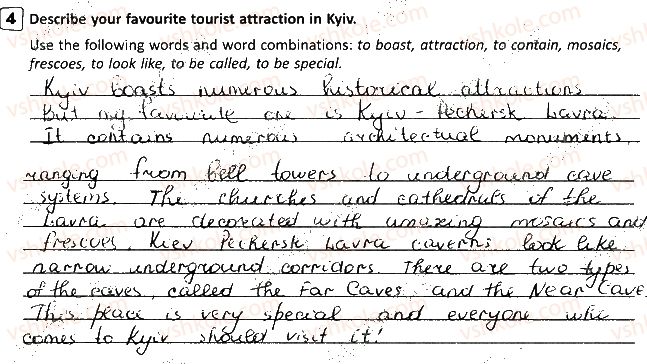 4 Describe your favourite tourist attraction in Kyiv.
Use the following words and word combinations: to boast, attraction, to contain, mosaics,
frescoes, to look like, to be called, to be special.
Kyiv boasts numerous historical attractions
But my favourite one is Kyiv - Pechersk Lavra.
It contains numerous architectual monuments,
ranging from bell towers to underground cave
systems. The churches and cathedrals of the
Lavra are decorated with amazing mosaics and
frescoes. Kiev Pechersk Lavra caverns look like
narrow underground corridors. There are two types
of the caves, called the Far Caves and the Near Cave
This place is very special and everyone who
comes to Kyiv should visit it!
vshkole.com